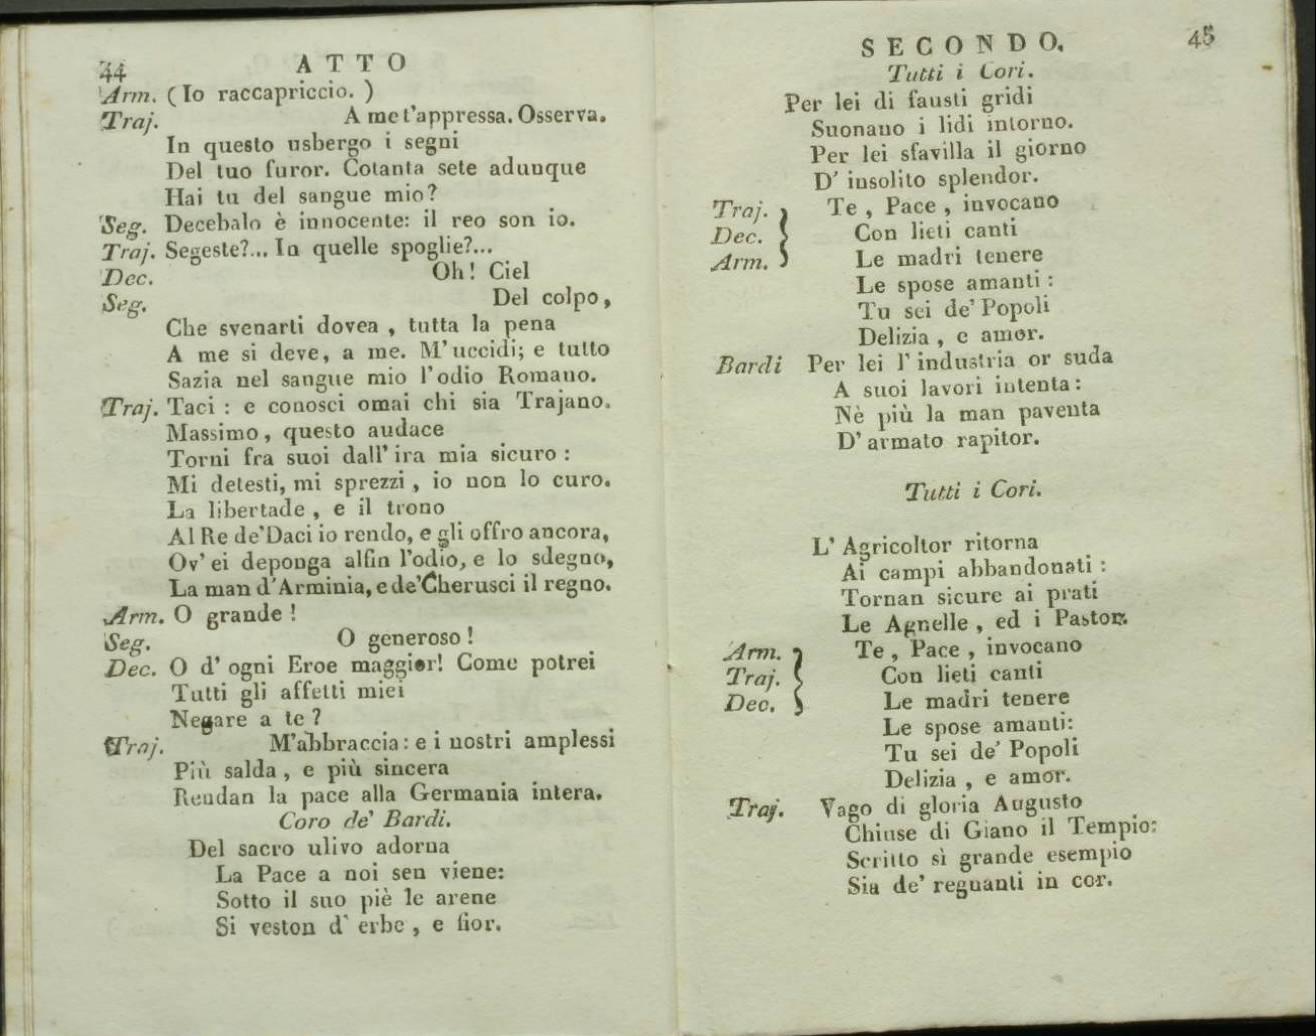 44
ATTO
Arm. (Io raccapriccio.)
Traj. A me t'appressa. Osserva.
In questo usbergo i segni
Del tuo furor. Cotanta sete adunque
Hai tu del sangue mio?
Seg. Decebalo è innocente: il reo son io.
Traj. Segeste?... In quelle spoglie?...
Dec. Oh! Ciel
Seg. Del colpo,
Che svenarti dovea, tutta la pena
A me si deve, a me. M'uccidi; e tutto
Sazia nel sangue mio l'odio Romano.
Traj. Taci: e conosci omai chi sia Trajano.
Massimo, questo audace
Torni fra suoi dall'ira mia sicuro:
Mi detesti, mi sprezzi, io non lo curo.
La libertade, e il trono
Al Re de'Daci io rendo, e gli offro ancora,
Ov'ei deponga alfin l'odio, e lo sdegno,
La man d'Arminia, e de'Cherusci il regno.
Arm. O grande!
Seg. O generoso!
Dec. O d'ogni Eroe maggior! Come potrei
Tutti gli affetti miei
Negare a te?
Traj. M'abbraccia: e i nostri amplessi
Più salda, e più sincera
Rendan la pace alla Germania intera.
Coro de' Bardi.
Del sacro ulivo adorna
La Pace a noi sen viene:
Sotto il suo piè le arene
Si veston d'erbe, e fior.
SECONDO.
45
Tutti i Cori.
Per lei di fausti gridi
Suonano i lidi intorno.
Per lei sfavilla il giorno
D'insolito splendor.
Traj. Te, Pace, invocano
Dec. Con lieti canti
Arm. Le madri tenere
Le spose amanti:
Tu sei de' Popoli
Delizia, e amor.
Bardi Per lei l'industria or suda
A suoi lavori intenta:
Nè più la man paventa
D'armato rapitor.
Tutti i Cori.
L'Agricoltor ritorna
Ai campi abbandonati:
Tornan sicure ai prati
Le Agnelle, ed i Pastor.
Arm. Te, Pace, invocano
Traj. Con lieti canti
Dec. Le madri tenere
Le spose amanti:
Tu sei de' Popoli
Delizia, e amor.
Traj. Vago di gloria Augusto
Chiuse di Giano il Tempio:
Scritto sì grande esempio
Sia de' regnanti in cor.